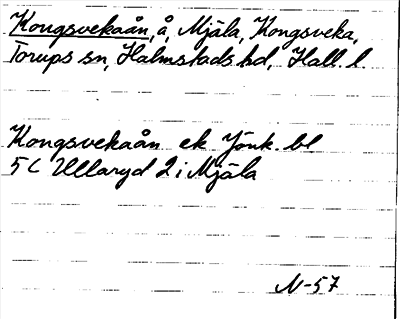 Kongsvekaån, å, Mjäla, Kongsveka,
Torups sn, Halmstads hd, Hall. l.
Kongsvekaån ek Jönk. bl
5 C Ullaryd 2 i Mjäla
N-57